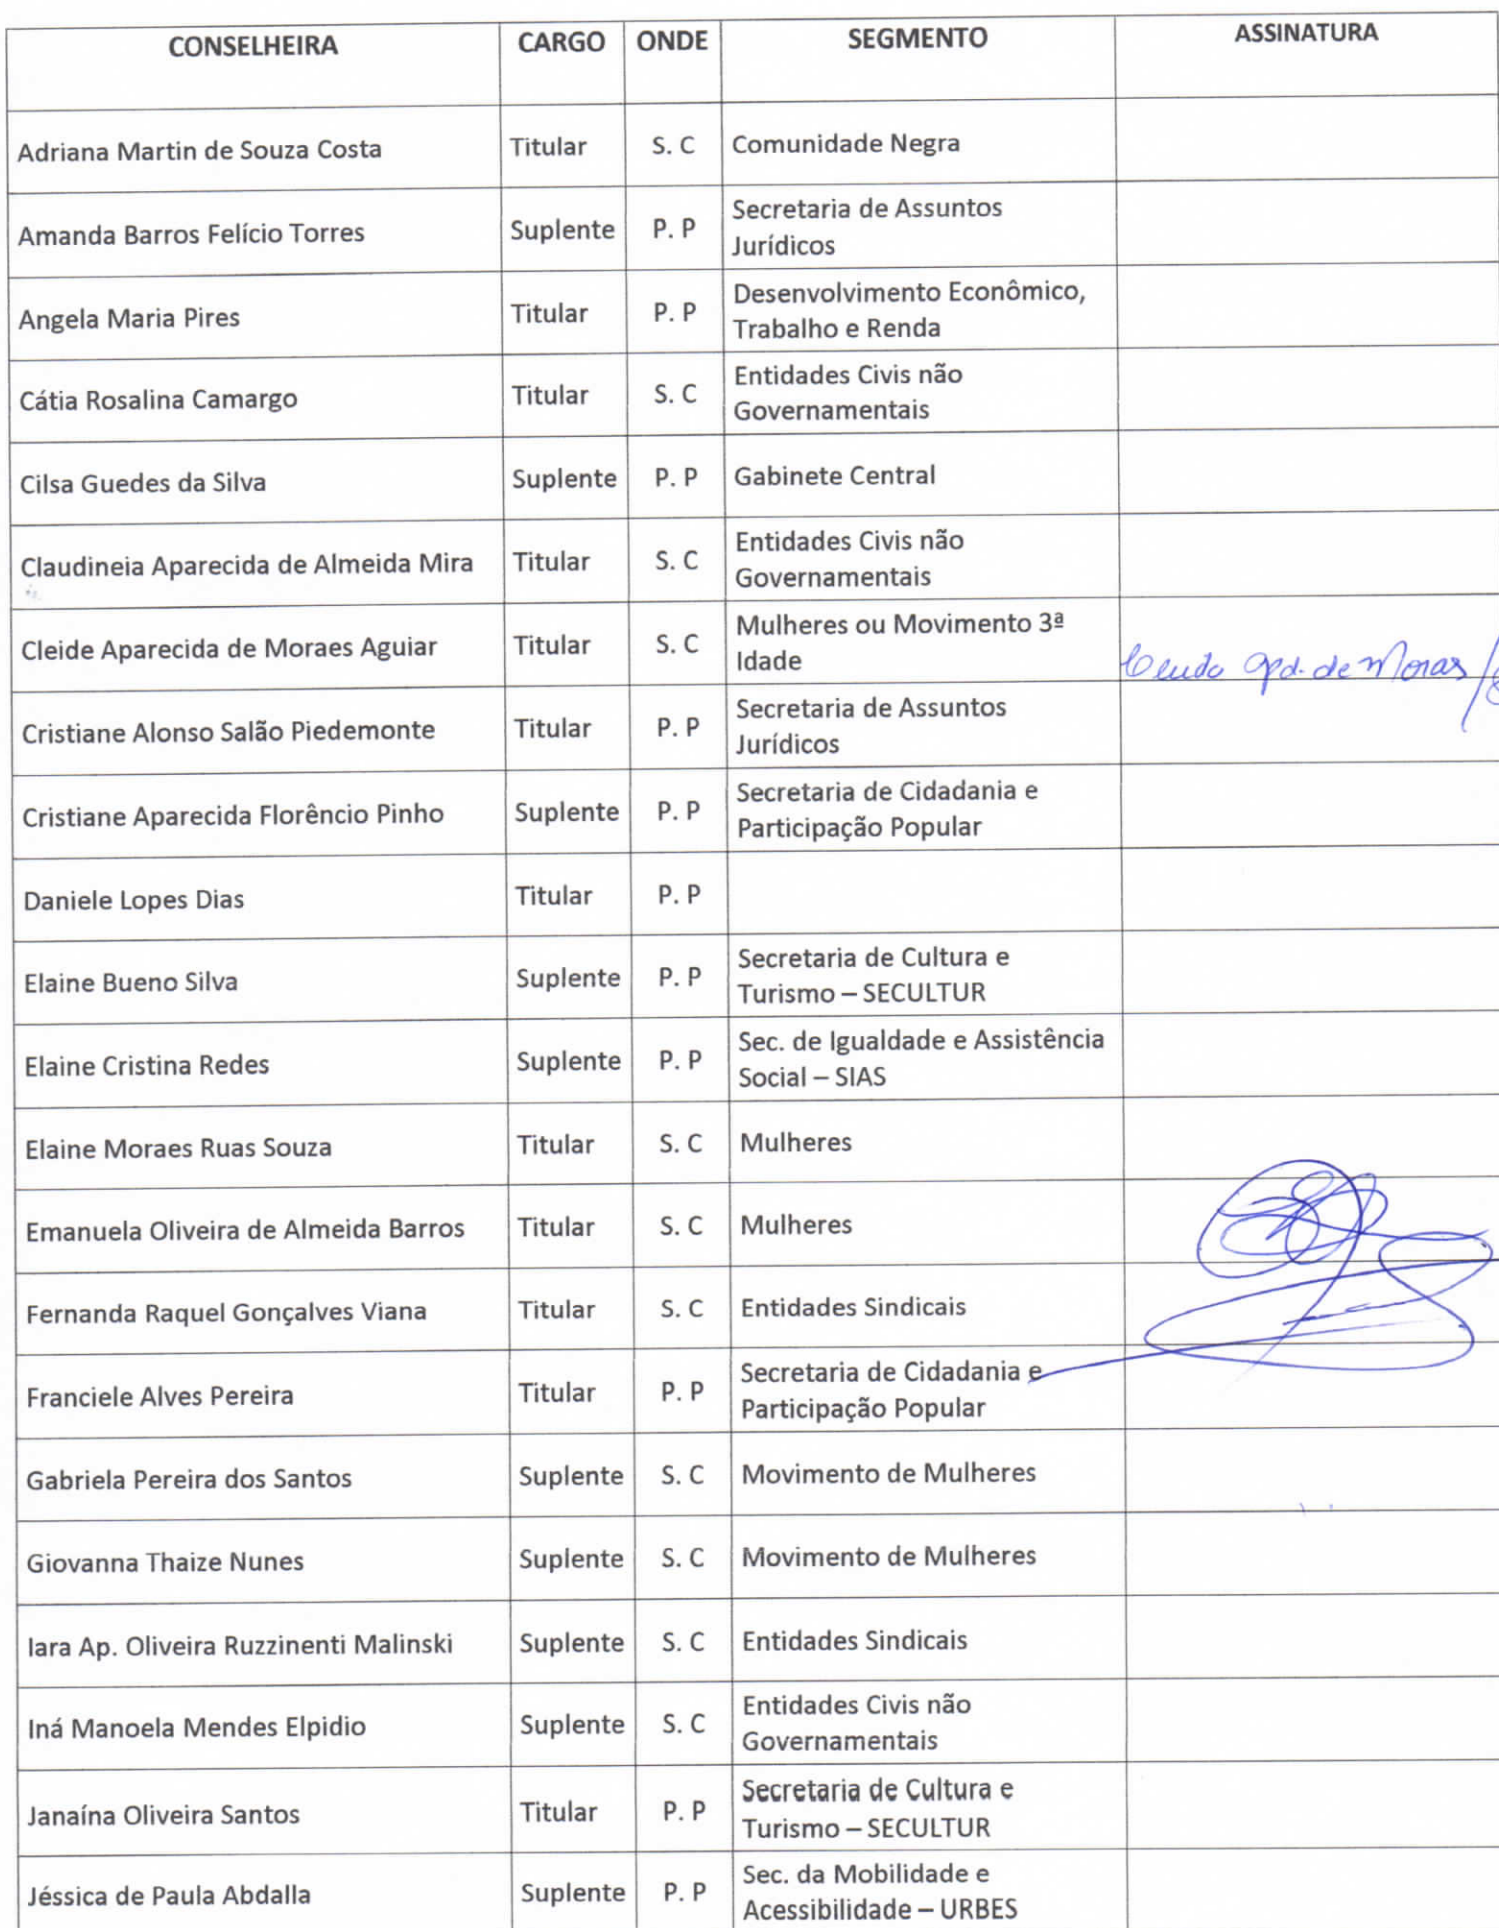 CONSELHEIRA CARGO ONDE SEGMENTO ASSINATURA
Adriana Martin de Souza Costa Titular S. C Comunidade Negra
Amanda Barros Felício Torres Suplente P. P Secretaria de Assuntos
Jurídicos
Angela Maria Pires Titular P. P Desenvolvimento Econômico,
Trabalho e Renda
Cátia Rosalina Camargo Titular S. C Entidades Civis não
Governamentais
Cilsa Guedes da Silva Suplente P. P Gabinete Central
Claudineia Aparecida de Almeida Mira Titular S. C Entidades Civis não
Governamentais
Cleide Aparecida de Moraes Aguiar Titular S. C Mulheres ou Movimento 3ª
Idade
de Moras
Cristiane Alonso Salão Piedemonte Titular P. P Secretaria de Assuntos
Jurídicos
Cristiane Aparecida Florêncio Pinho Suplente P. P Secretaria de Cidadania e
Participação Popular
Daniele Lopes Dias Titular P. P
Elaine Bueno Silva Suplente P. P Secretaria de Cultura e
Turismo – SECULTUR
Elaine Cristina Redes Suplente P. P Sec. de Igualdade e Assistência
Social – SIAS
Elaine Moraes Ruas Souza Titular S. C Mulheres
Emanuela Oliveira de Almeida Barros Titular S. C Mulheres
Fernanda Raquel Gonçalves Viana Titular S. C Entidades Sindicais
Franciele Alves Pereira Titular P. P Secretaria de Cidadania e
Participação Popular
Gabriela Pereira dos Santos Suplente S. C Movimento de Mulheres
Giovanna Thaize Nunes Suplente S. C Movimento de Mulheres
Iara Ap. Oliveira Ruzzinenti Malinski Suplente S. C Entidades Sindicais
Iná Manoela Mendes Elpidio Suplente S. C Entidades Civis não
Governamentais
Janaína Oliveira Santos Titular P. P Secretaria de Cultura e
Turismo – SECULTUR
Jéssica de Paula Abdalla Suplente P. P Sec. da Mobilidade e
Acessibilidade – URBES